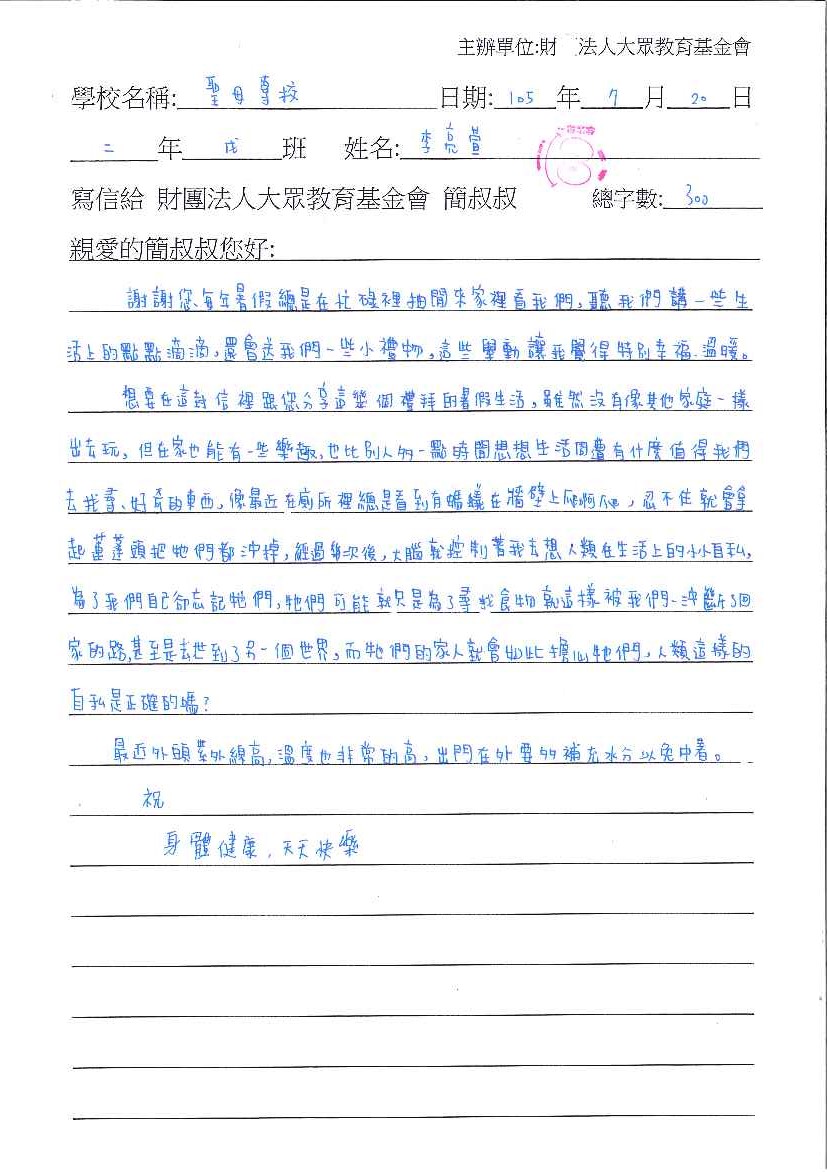 主辦單位:財 法人大眾教育基金會
學校名稱: 聖母專校 日期: 105 年 7 月 20 日
二 年 戊 班 姓名: 李亮萱
寫信給 財團法人大眾教育基金會 簡叔叔 總字數: 300
親愛的簡叔叔您好:
謝謝您每年暑假總是在忙碌裡抽閒來家裡看我們,聽我們講一些生
活上的點點滴滴,還會送我們一些小禮物,這些舉動讓我覺得特別幸福、溫暖。
想要在這封信裡跟您分享這幾個禮拜的暑假生活,雖然沒有像其他家庭一樣
出去玩,但在家也能有一些樂趣,也比別人多一點時間想想生活周遭有什麼值得我們
去找尋、好奇的東西,像最近在廁所裡總是看到有螞蟻在牆壁上爬啊爬,忍不住就會拿
起蓮蓬頭把牠們都沖掉,經過幾次後,大腦就控制著我去想人類在生活上的小小自私,
為了我們自己卻忘記牠們,牠們可能就只是為了尋找食物就這樣被我們一沖斷了回
家的路,甚至是去世到了另一個世界,而牠們的家人就會如此擔心牠們,人類這樣的
自私是正確的嗎?
最近外頭紫外線高,溫度也非常的高,出門在外要多補充水分以免中暑。
祝
身體健康,天天快樂